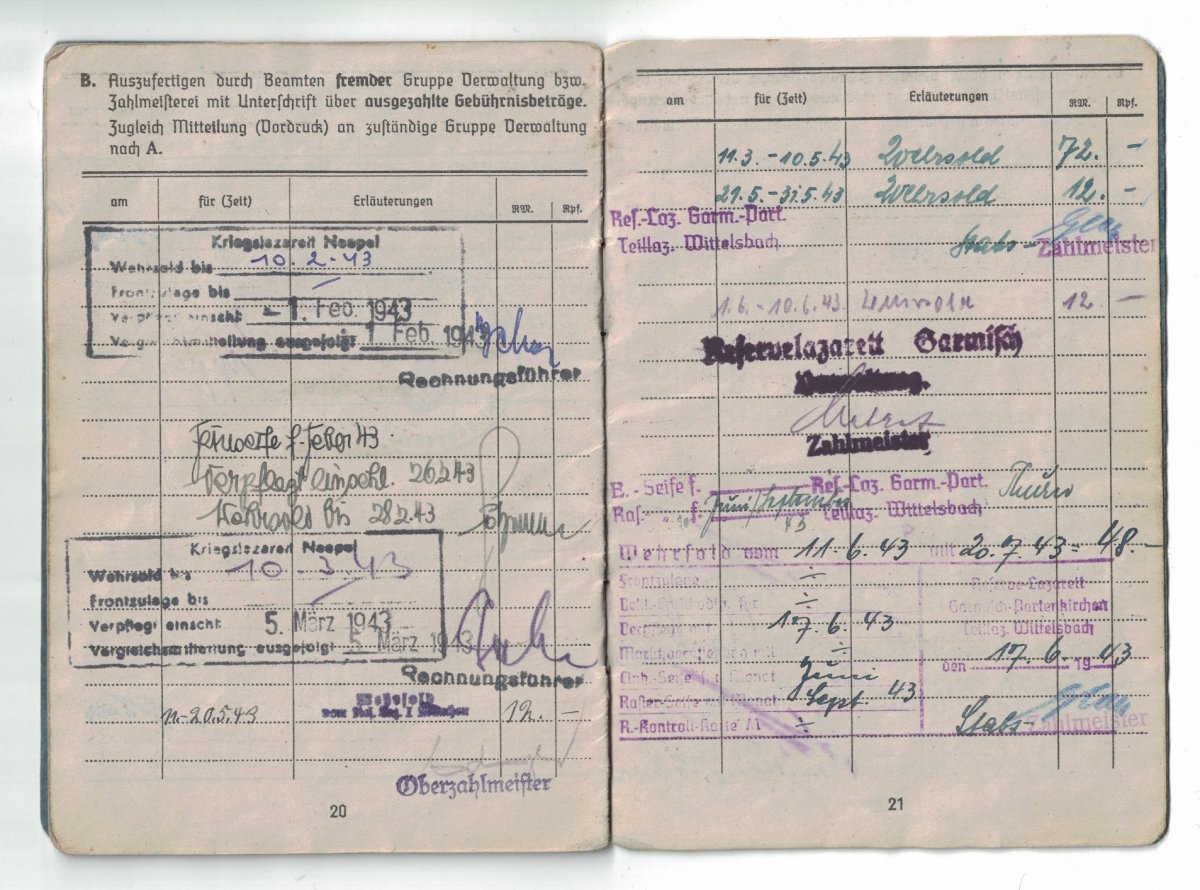 B. Auszufertigen durch Beamten fremder Gruppe Verwaltung bzw.
Zahlmeisterei mit Unterschrift über ausgezahlte Gebührnisbeträge.
Zugleich Mitteilung (Vordruck) an zuständige Gruppe Verwaltung
nach A.
am für (Zeit) Erläuterungen RM. Rpf.
Kriegslazarett Neapel
Wehrsold bis 10.2.43
Frontzulage bis
Verpflegt einschl. -1. Feb. 1943
ausgefolgt 1 Feb. 1943
Rechnungsführer
f. Feber 43
Verpflegt einschl. 26243
Wehrsold bis 28243
Kriegslazarett Neapel
Wehrsold bis 10.3.43
Frontzulage bis
Verpflegt einschl. 5. März 1943
Vergleichsmitteilung ausgefolgt 5 März 1943
Rechnungsführer
20.5.43 Wehrsold 12. –
Oberzahlmeister
20
am für (Zeit) Erläuterungen RM. Rpf.
11.3. - 10.5.43 Wehrsold 72. –
21.5. - 31.5.43 Wehrsold 12. –
Res.-Laz. Garm.-Part.
Teillaz. Wittelsbach Stabs- Zahlmeister
1.6. - 10.6.43 Wehrsold 12 –
Reservelazarett Garmisch
Zahlmeister
E.-Seife f. Res.-Laz. Garm.-Part.
Ras. f. Juni/September 43 Teillaz. Wittelsbach
Wehrsold vom 11.6.43 mit 20.7.43 = 48.-
Frontzulage ÷ Reserve-Lazarett
÷ Garmisch-Partenkirchen
Verpflegt mit 17.6.43 Teillaz. Wittelsbach
÷ den 17.6.1943
Einh.-Seife für Monat Juni
Rasier-Seife für Monat Sept. 43
R.-Kontroll-Karte M ÷ Stabs- Zahlmeister
21